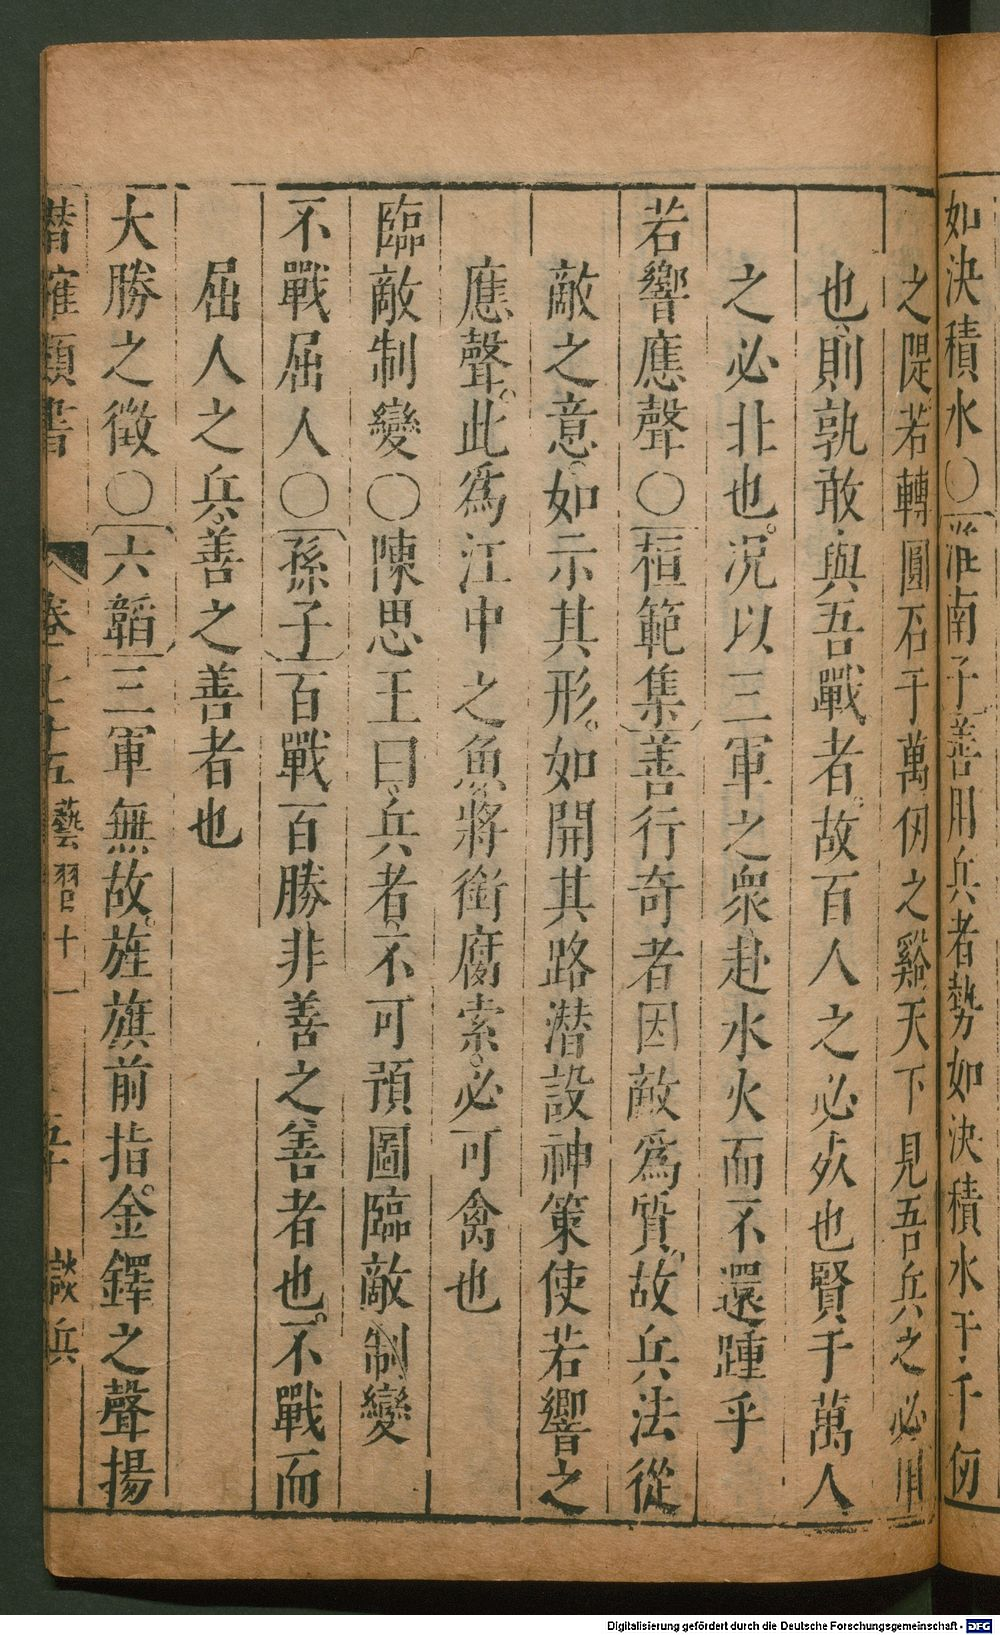 如決積水○淮南子善用兵者勢如決積水于千仞
之隄若轉圓石于萬仞之谿天下見吾兵之必用
也則孰敢與吾戰者故百人之必死也賢于萬人
之必北也況以三軍之眾赴水火而不還踵乎
若響應聲○桓範集善行奇者因敵為質故兵法從
敵之意如示其形如開其路潛設神策使若響之
應聲此為江中之魚將銜腐索必可禽也
臨敵制變○陳思王曰兵者不可預圖臨敵制變
不戰屈人○孫子百戰百勝非善之善者也不戰而
屈人之兵善之善者也
大勝之徵○六韜三軍無故旌旗前指金鐸之聲揚
潛確類書 卷七十五 藝習十一 五十 談兵
Digitalisierung gefördert durch die Deutsche Forschungsgemeinschaft - DFG